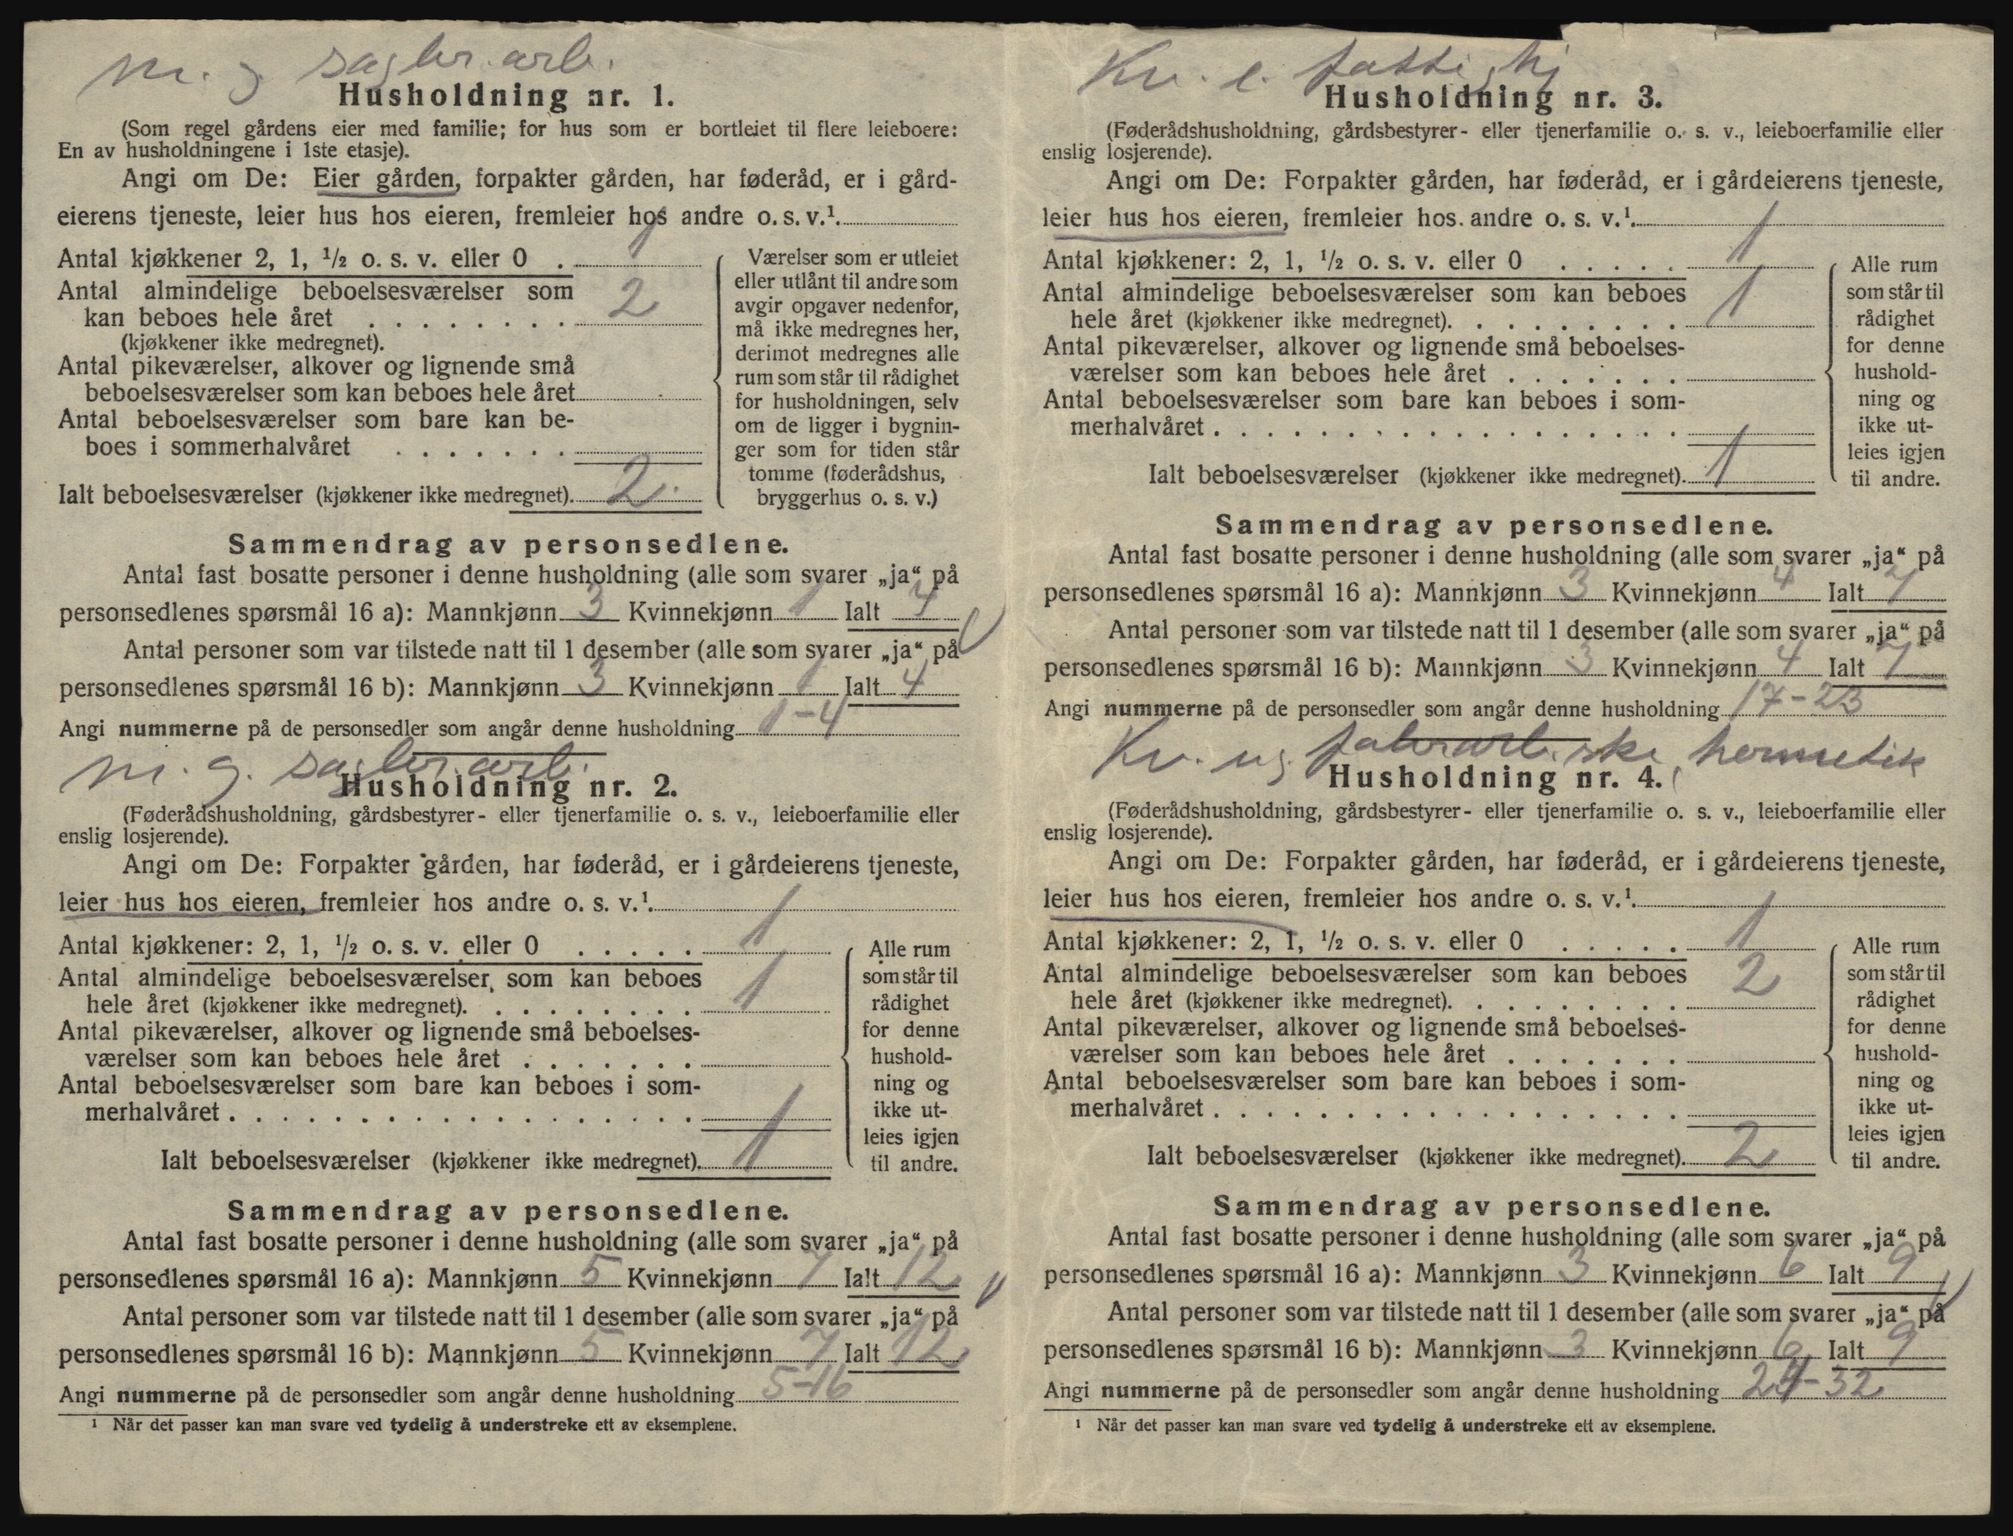 m. g. sagbr. arb.
Husholdning nr. 1.
(Som regel gårdens eier med familie; for hus som er bortleiet til flere leieboere:
En av husholdningene i 1ste etasje).
Angi om De: Eier gården, forpakter gården, har føderåd, er i gård-
eierens tjeneste, leier hus hos eieren, fremleier hos andre o. s. v.¹.
Antal kjøkkener 2, 1, ½ o. s. v. eller 0 . 1
Antal almindelige beboelsesværelser som
kan beboes hele året . . . . . . . . 2
(kjøkkener ikke medregnet).
Antal pikeværelser, alkover og lignende små
beboelsesværelser som kan beboes hele året
Antal beboelsesværelser som bare kan be-
boes i sommerhalvåret . . . . . . .
Ialt beboelsesværelser (kjøkkener ikke medregnet). 2.
Værelser som er utleiet
eller utlånt til andre som
avgir opgaver nedenfor,
må ikke medregnes her,
derimot medregnes alle
rum som står til rådighet
for husholdningen, selv
om de ligger i bygnin-
ger som for tiden står
tomme (føderådshus,
bryggerhus o. s. v.)
Sammendrag av personsedlene.
Antal fast bosatte personer i denne husholdning (alle som svarer „ja“ på
personsedlenes spørsmål 16 a): Mannkjønn 3 Kvinnekjønn 1 Ialt 4
Antal personer som var tilstede natt til 1 desember (alle som svarer „ja“ på
personsedlenes spørsmål 16 b): Mannkjønn 3 Kvinnekjønn 1 Ialt 4
Angi nummerne på de personsedler som angår denne husholdning 1-4
m. g. sagbr. arb.
Husholdning nr. 2.
(Føderådshusholdning, gårdsbestyrer- eller tjenerfamilie o. s. v., leieboerfamilie eller
enslig losjerende).
Angi om De: Forpakter gården, har føderåd, er i gårdeierens tjeneste,
leier hus hos eieren, fremleier hos andre o. s. v.¹.
Antal kjøkkener: 2, 1, ½ o. s. v. eller 0 . . . . . 1
Antal almindelige beboelsesværelser som kan beboes
hele året (kjøkkener ikke medregnet). . . . . . . . . 1
Antal pikeværelser, alkover og lignende små beboelses-
værelser som kan beboes hele året . . . . . . .
Antal beboelsesværelser som bare kan beboes i som-
merhalvåret . . . . . . . . . . . . . . . . . .
Ialt beboelsesværelser (kjøkkener ikke medregnet). 1
Alle rum
som står til
rådighet
for denne
hushold-
ning og
ikke ut-
leies igjen
til andre.
Sammendrag av personsedlene.
Antal fast bosatte personer i denne husholdning (alle som svarer „ja“ på
personsedlenes spørsmål 16 a): Mannkjønn 5 Kvinnekjønn 7 Ialt 12
Antal personer som var tilstede natt til 1 desember (alle som svarer „ja“ på
personsedlenes spørsmål 16 b): Mannkjønn 5 Kvinnekjønn 7 Ialt 12
Angi nummerne på de personsedler som angår denne husholdning 5-16
¹ Når det passer kan man svare ved tydelig å understreke ett av eksemplene.
Kv. e. fattighj
Husholdning nr. 3.
(Føderådshusholdning, gårdsbestyrer- eller tjenerfamilie o. s. v., leieboerfamilie eller
enslig losjerende).
Angi om De: Forpakter gården, har føderåd, er i gårdeierens tjeneste,
leier hus hos eieren, fremleier hos andre o. s. v.¹.
Antal kjøkkener: 2, 1, ½ o. s. v. eller 0 . . . . . 1
Antal almindelige beboelsesværelser som kan beboes
hele året (kjøkkener ikke medregnet). . . . . . . . . 1
Antal pikeværelser, alkover og lignende små beboelses-
værelser som kan beboes hele året . . . . . . .
Antal beboelsesværelser som bare kan beboes i som-
merhalvåret . . . . . . . . . . . . . . . . . .
Ialt beboelsesværelser (kjøkkener ikke medregnet). 1
Alle rum
som står til
rådighet
for denne
hushold-
ning og
ikke ut-
leies igjen
til andre.
Sammendrag av personsedlene.
Antal fast bosatte personer i denne husholdning (alle som svarer „ja“ på
personsedlenes spørsmål 16 a): Mannkjønn 3 Kvinnekjønn 4 Ialt 7
Antal personer som var tilstede natt til 1 desember (alle som svarer „ja“ på
personsedlenes spørsmål 16 b): Mannkjønn 3 Kvinnekjønn 4 Ialt 7
Angi nummerne på de personsedler som angår denne husholdning 17-23
Kv. ug. fabrarb.ske, hermetik
Husholdning nr. 4.
(Føderådshusholdning, gårdsbestyrer- eller tjenerfamilie o. s. v., leieboerfamilie eller
enslig losjerende).
Angi om De: Forpakter gården, har føderåd, er i gårdeierens tjeneste,
leier hus hos eieren, fremleier hos andre o. s. v.¹.
Antal kjøkkener: 2, 1, ½ o. s. v. eller 0 . . . . . 1
Antal almindelige beboelsesværelser som kan beboes
hele året (kjøkkener ikke medregnet). . . . . . . . . 2
Antal pikeværelser, alkover og lignende små beboelses-
værelser som kan beboes hele året . . . . . . .
Antal beboelsesværelser som bare kan beboes i som-
merhalvåret . . . . . . . . . . . . . . . . . .
Ialt beboelsesværelser (kjøkkener ikke medregnet). 2
Alle rum
som står til
rådighet
for denne
hushold-
ning og
ikke ut-
leies igjen
til andre.
Sammendrag av personsedlene.
Antal fast bosatte personer i denne husholdning (alle som svarer „ja“ på
personsedlenes spørsmål 16 a): Mannkjønn 3 Kvinnekjønn 6 Ialt 9
Antal personer som var tilstede natt til 1 desember (alle som svarer „ja“ på
personsedlenes spørsmål 16 b): Mannkjønn 3 Kvinnekjønn 6 Ialt 9
Angi nummerne på de personsedler som angår denne husholdning 24-32
¹ Når det passer kan man svare ved tydelig å understreke ett av eksemplene.